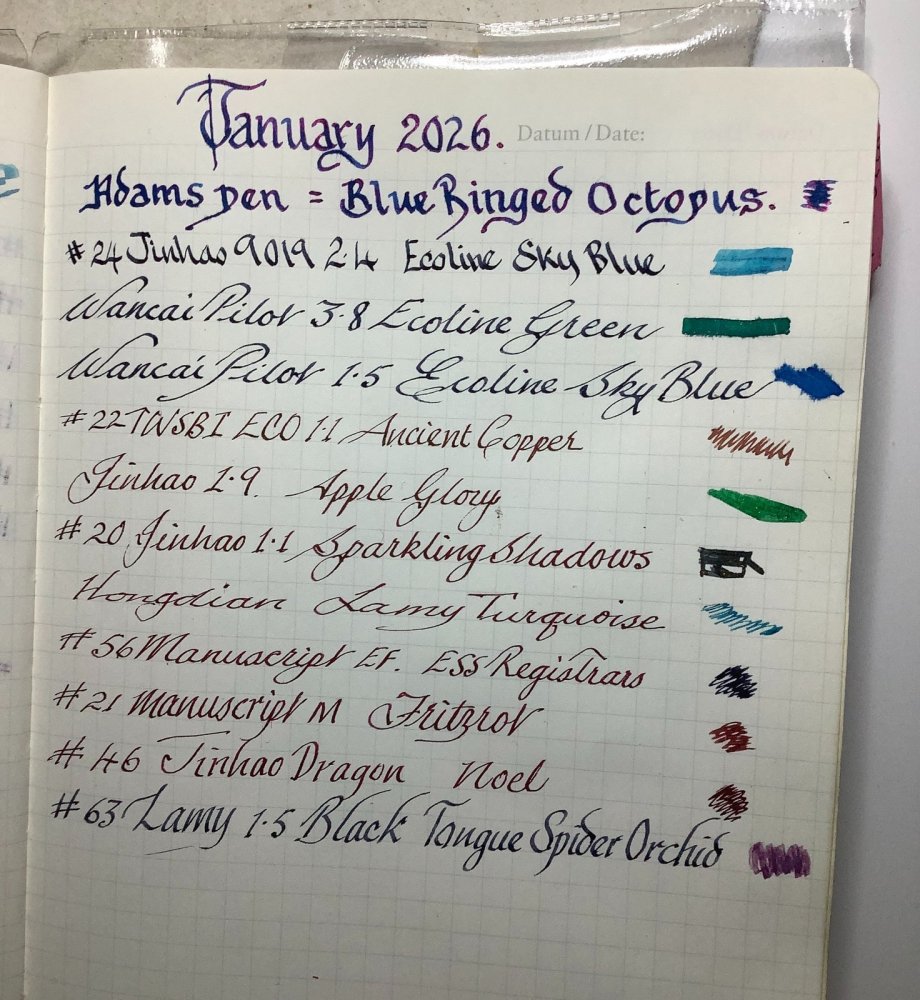 January 2026. Datum / Date:
Adams pen = Blue Ringed Octopus.
#24 Jinhao 9019 2.4 Ecoline Sky Blue
Wancai Pilot 3.8 Ecoline Green
Wancai Pilot 1.5 Ecoline Sky Blue
#22 TWSBI ECO 1.1 Ancient Copper
Jinhao 1.9. Apple Glory
#20 Jinhao 1.1 Sparkling Shadows
Hongdian Lamy Turquoise
#56 Manuscript EF. ESS Registrars
#21 Manuscript M Fritzrot
#46 Jinhao Dragon Noel
#63 Lamy 1.5 Black Tongue Spider Orchid